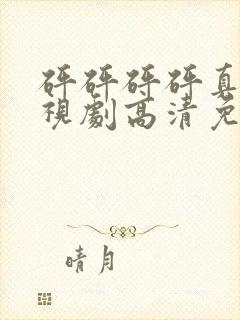 砰砰砰砰真
視劇高清免
晴月